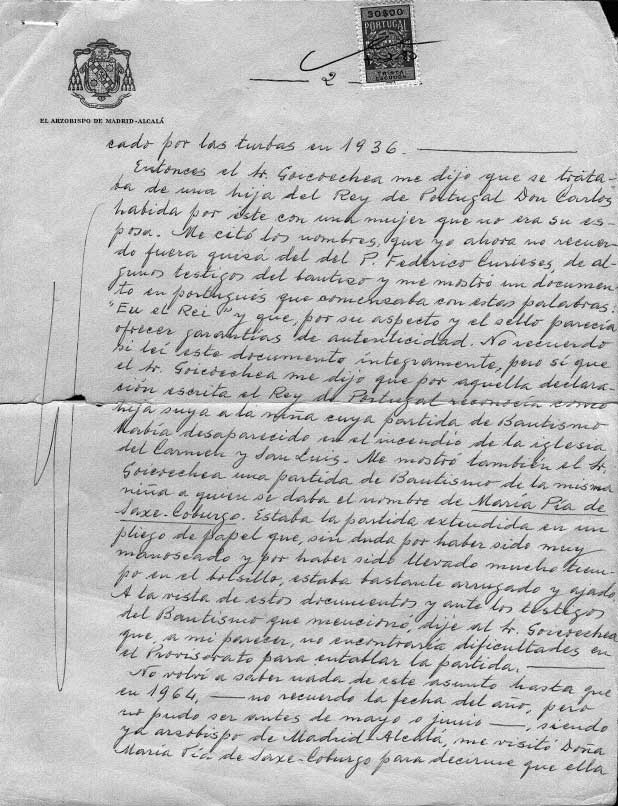 30$00
PORTUGAL
TRINTA
ESCUDOS
— 2 —
EL ARZOBISPO DE MADRID-ALCALÁ
cado por las turbas en 1936. —
Entonces el Sr. Goicoechea me dijo que se trata-
ba de una hija del Rey de Portugal Don Carlos,
habida por éste con una mujer que no era su es-
posa. Me citó los nombres, que yo ahora no recuer-
do fuera quisá del del P. Federico Curieses, de al-
gunos testigos del bautiso y me mostró un documen-
to en portugués que comensaba con estas palabras:
"Eu el Rei" y que, por su aspecto y el sello parecía
ofrecer garantías de autenticidad. No recuerdo
si leí este documento íntegramente, pero sí que
el Sr. Goicoechea me dijo que por aquella declara-
ción escrita el Rey de Portugal reconocía como
hija suya a la niña cuya partida de Bautismo
había desaparecido en el incendio de la iglesia
del Carmen y San Luis. Me mostró también el Sr.
Goicoechea una partida de Bautismo de la misma
niña a quien se daba el nombre de María Pía de
Saxe-Coburgo. Estaba la partida extendida en un
pliego de papel que, sin duda por haber sido muy
manoseado y por haber sido llevado mucho tiem-
po en el bolsillo, estaba bastante arrugado y ajado.
A la vista de estos documentos y ante los testigos
del Bautismo que mencionó, dije al Sr. Goicoechea
que, a mi parecer, no encontraría dificultades en
el Provisorato para entablar la partida. —
No volví a saber nada de este asunto hasta que
en 1964, — no recuerdo la fecha del año, pero
no pudo ser antes de mayo o junio —, siendo
ya arzobispo de Madrid-Alcalá, me visitó Doña
María Pía de Saxe-Coburgo para decirme que ella